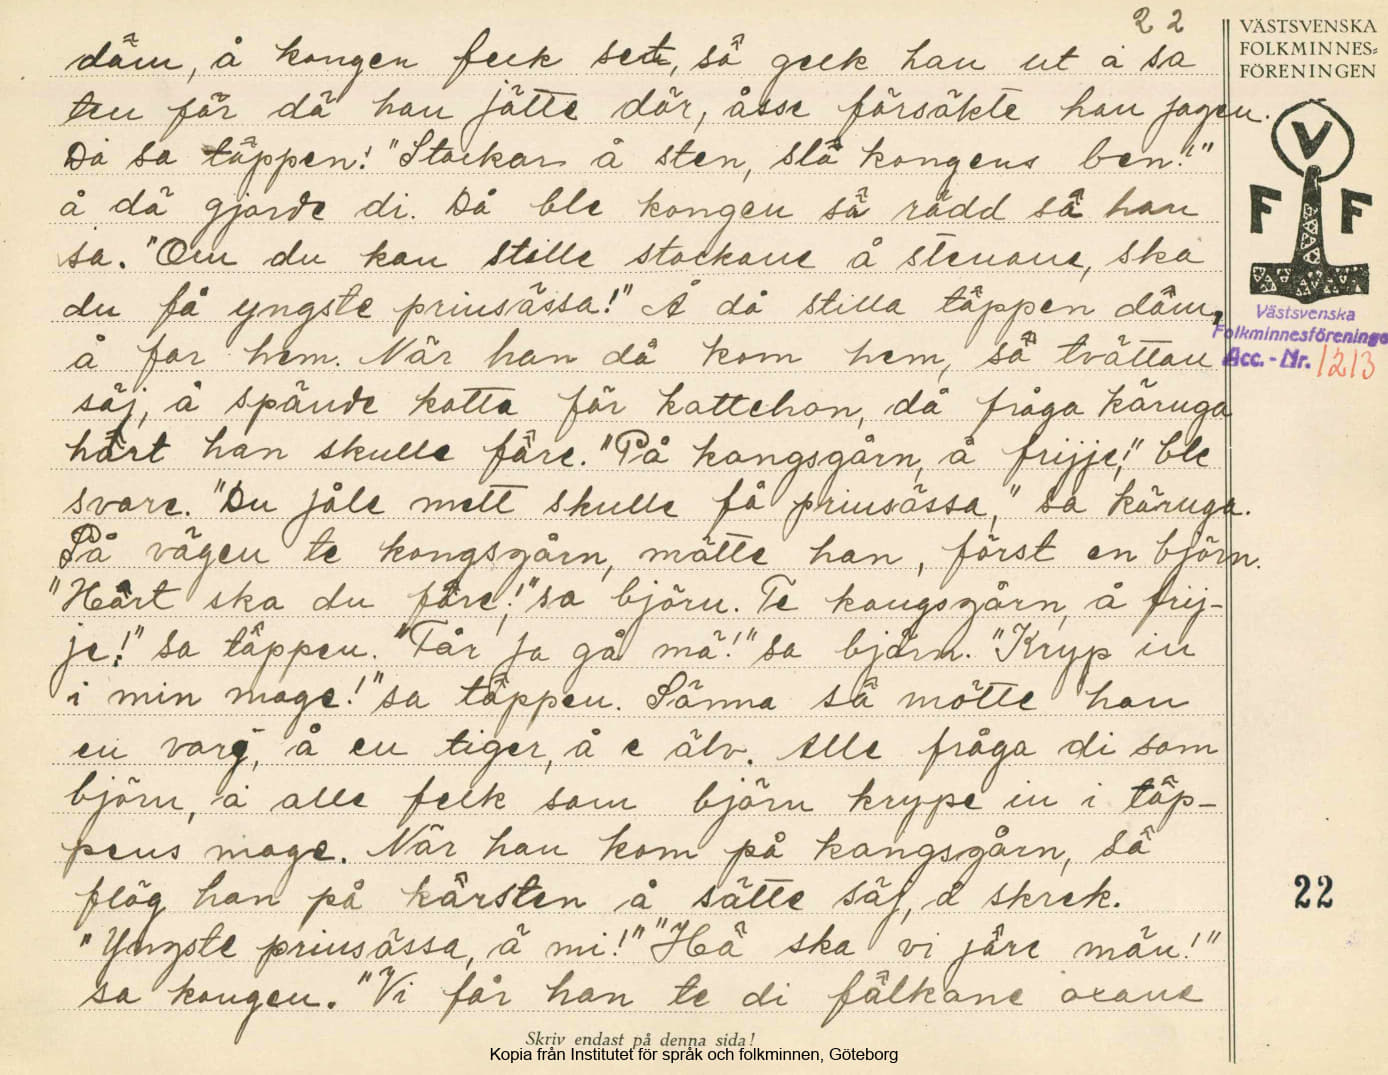 22
VÄSTSVENSKA
FOLKMINNES-
FÖRENINGEN
V
F F
Västsvenska
Folkminnesföreningen
Acc.-Nr. 1213
däm, å kongen feek sett, sô geek han ut å sa
ten för dä han jätte där, åsse försökte han jagen.
Då sa tôppen! "Stockar å sten, slå kongens ben!"
å dä gjorde di. Då ble kongen sô rädd sô han
sa. "Om du kan stille stockane å stenane, ska
du få yngste prinsässa!" Å då stilla tôppen dôm,
å for hem. När han då kom hem, sô tvättan
säj, å spände kotta för kattehon, då fråga käruga
hôrt han skulle fôre. "På kongsgårn, å frijje!" ble
svare. "Du jåle mett skulle få prinsässa," sa käruga.
På vägen te kongsgårn, mötte han, först en björn.
"Hôrt ska du fôre!" sa björn. Te kongsgårn, å frij-
je!" sa tôppen. "Får ja gå mä!" sa björn. "Kryp in
i min mage!" sa tôppen. Sänna så mötte han
en varg, å en tiger, å e älv. Alle fråga di som
björn, å alle felk som björn krype in i tôp-
pens mage. När han kom på kongsgårn, sô
flög han på kôrsten å sätte säj, å skrek.
"Yngste prinsässa, ä mi!" "Hô ska vi jôre män!"
sa kongen. "Vi får han te di fôlkane oxane
22
Skriv endast på denna sida!
Kopia från Institutet för språk och folkminnen, Göteborg